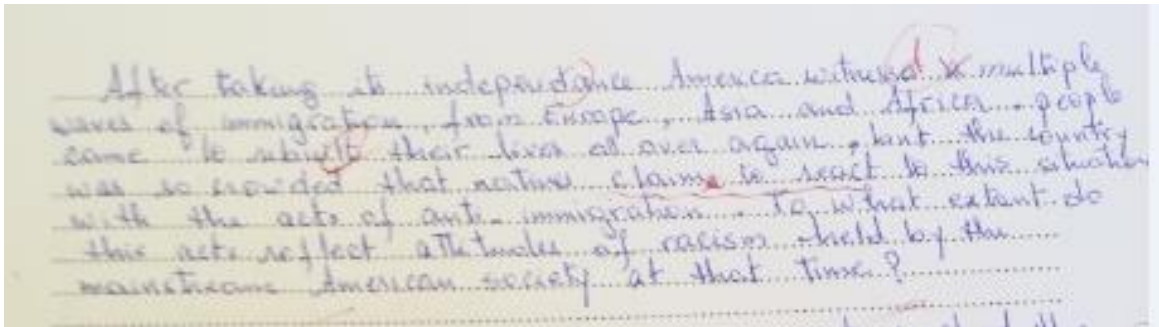 After taking its independance America witnessd multiple
waves of immigration, from Europe, Asia and Africa. people
came to rebuilt their lives all over again, but the country
was so crowded that natives claims to react to this situation
with the acts of anti-immigration. To what extant do
this acts reflect attitudes of racism held by the
mainstream American society at that time?